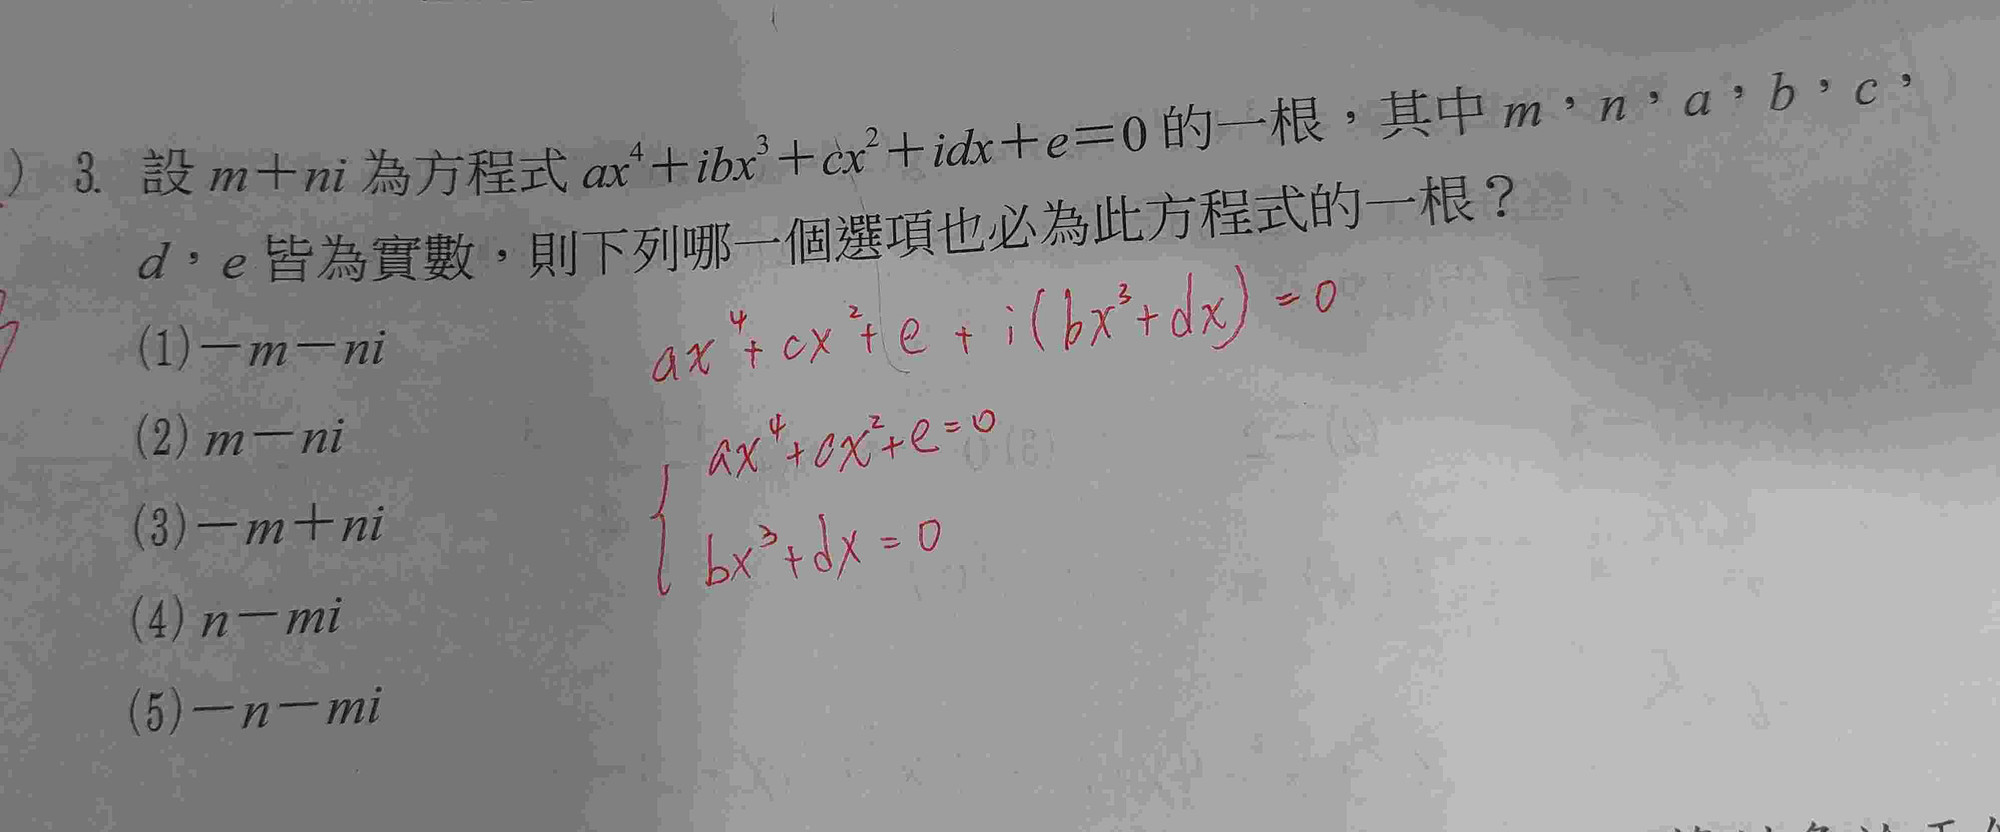 ) 3. 設 m+ni 為方程式 ax⁴+ibx³+cx²+idx+e=0 的一根，其中 m，n，a，b，c，
d，e 皆為實數，則下列哪一個選項也必為此方程式的一根？
(1)－m－ni
(2) m－ni
(3)－m＋ni
(4) n－mi
(5)－n－mi
ax⁴+cx²+e+i(bx³+dx)=0
ax⁴+cx²+e=0
bx³+dx=0